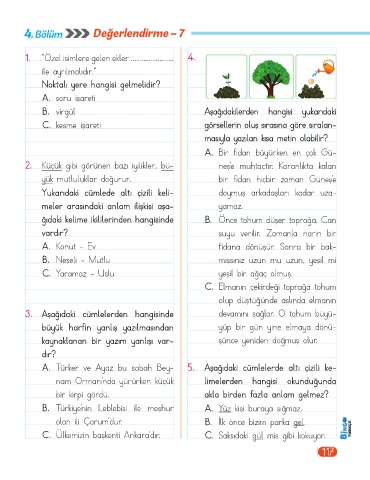 4. Bölüm Değerlendirme – 7
1. "Özel isimlere gelen ekler ......................
ile ayrılmalıdır."
Noktalı yere hangisi gelmelidir?
A. soru işareti
B. virgül
C. kesme işareti
2. Küçük gibi görünen bazı iyilikler, bü-
yük mutluluklar doğurur.
Yukarıdaki cümlede altı çizili keli-
meler arasındaki anlam ilişkisi aşa-
ğıdaki kelime ikililerinden hangisinde
vardır?
A. Konut – Ev
B. Neşeli – Mutlu
C. Yaramaz – Uslu
3. Aşağıdaki cümlelerden hangisinde
büyük harfin yanlış yazılmasından
kaynaklanan bir yazım yanlışı var-
dır?
A. Türker ve Ayaz bu sabah Bey-
nam Ormanı'nda yürürken küçük
bir kirpi gördü.
B. Türkiye'nin Leblebisi ile meşhur
olan ili Çorum'dur.
C. Ülkemizin başkenti Ankara'dır.
4.
Aşağıdakilerden hangisi yukarıdaki
görsellerin oluş sırasına göre sıralan-
masıyla yazılan kısa metin olabilir?
A. Bir fidan büyürken en çok Gü-
neş'e muhtaçtır. Karanlıkta kalan
bir fidan hiçbir zaman Güneş'e
doymuş arkadaşları kadar uza-
yamaz.
B. Önce tohum düşer toprağa. Can
suyu verilir. Zamanla narin bir
fidana dönüşür. Sonra bir bak-
mışsınız uzun mu uzun, yeşil mi
yeşil bir ağaç olmuş.
C. Elmanın çekirdeği toprağa tohum
olup düştüğünde aslında elmanın
devamını sağlar. O tohum büyü-
yüp bir gün yine elmaya dönü-
şünce yeniden doğmuş olur.
5. Aşağıdaki cümlelerde altı çizili ke-
limelerden hangisi okunduğunda
akla birden fazla anlam gelmez?
A. Yüz kişi buraya sığmaz.
B. İlk önce bizim parka gel.
C. Saksıdaki gül mis gibi kokuyor.
117